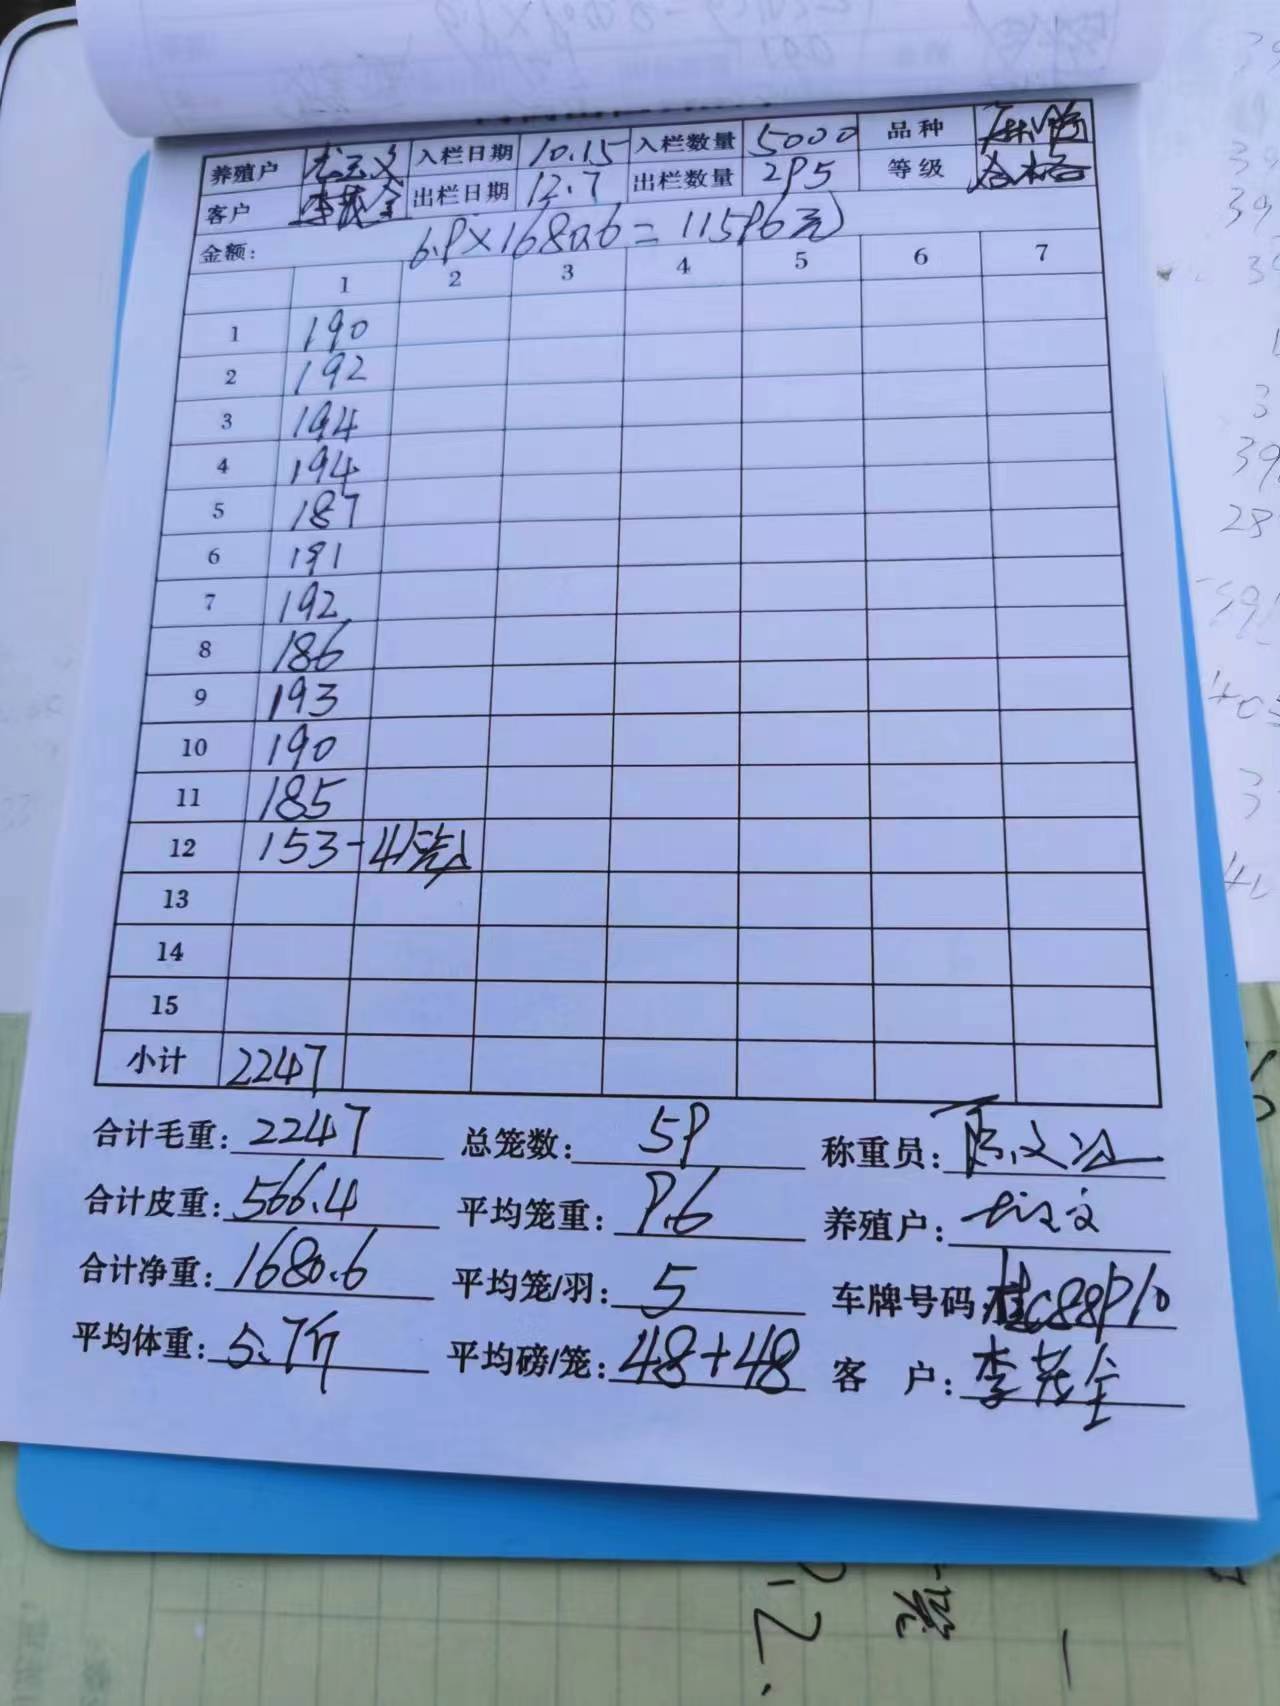 养殖户 入栏日期 10.15 入栏数量 5000 品种
客户 李茂全 出栏日期 12.7 出栏数量 295 等级 合格
金额: 6.9×1680.6=11596元
1 2 3 4 5 6 7
1 190
2 192
3 194
4 194
5 187
6 191
7 192
8 186
9 193
10 190
11 185
12 153-4笼
13
14
15
小计 2247
合计毛重: 2247 总笼数: 59 称重员:
合计皮重: 566.4 平均笼重: 9.6 养殖户:
合计净重: 1680.6 平均笼/羽: 5 车牌号码: 桂C88910
平均体重: 5.7斤 平均磅/笼: 48+48 客 户: 李茂全